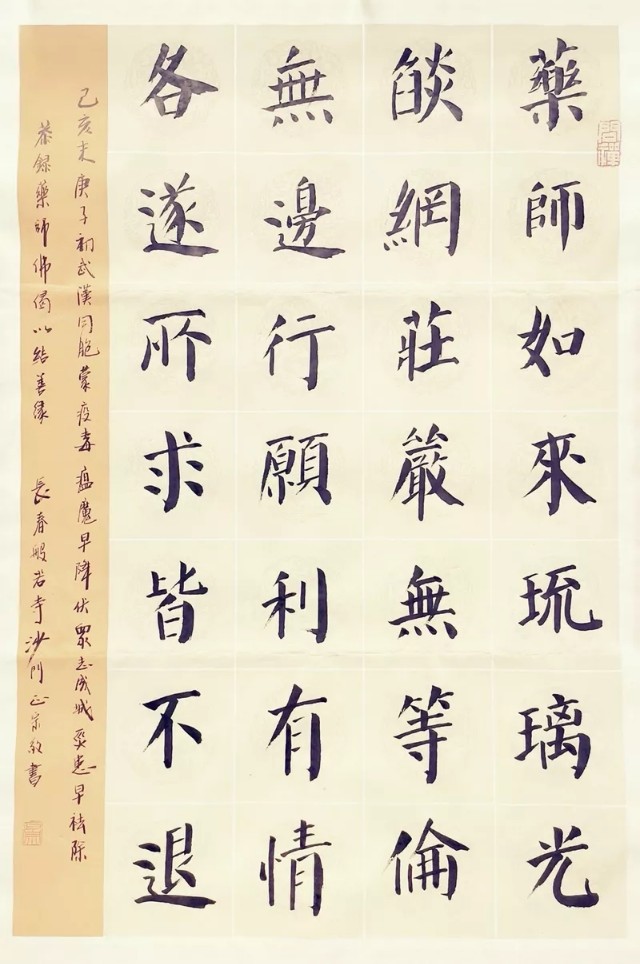 藥師如來琉璃光
燄網莊嚴無等倫
無邊行願利有情
各遂所求皆不退
己亥末庚子初武漢同胞蒙疫毒瘟魔早降伏眾志成城災患早祛除
恭録藥師佛偈以結善緣 長春般若寺沙門正宗敬書